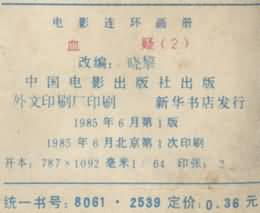 电影连环画册
血 疑(2)
改编：晓黎
中国电影出版社出版
外文印刷厂印刷 新华书店发行
1985年6月第1版
1985年6月北京第1次印刷
开本：787×1092毫米1/64 印张：2
统一书号：8061·2539 定价：0.36元